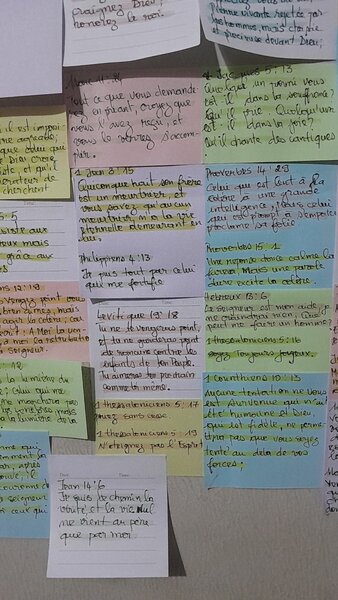 craignez Dieu;
honorez le roi.
Pierre vivante, rejetée par
les hommes, mais choisie
et précieuse devant Dieu;
Marc 11:24
Tout ce que vous demande-
rez en priant, croyez que
vous l'avez reçu, et
vous le verrez s'accom-
plir.
Jacques 5:13
Quelqu'un parmi vous
est-il dans la souffrance?
Qu'il prie. Quelqu'un
est-il dans la joie?
Qu'il chante des cantiques
il est impossi
être agréable
que celui qui
de Dieu croie
existe, et qu'il
cherchent
1 Jean 3:15
Quiconque hait son frère
est un meurtrier, et
vous savez qu'aucun
meurtrier n'a la vie
éternelle demeurant en
lui.
Philippiens 4:13
Je puis tout par celui
qui me fortifie
Proverbes 14:29
Celui qui est lent à la
colère a une grande
intelligence, mais celui
qui est prompt à s'emporter
proclame sa folie
Proverbes 15:1
Une réponse douce calme la
fureur, Mais une parole
dure excite la colère.
Lévitique 19:18
Tu ne te vengeras point,
et tu ne garderas point
de rancune contre les
enfants de ton Peuple.
Tu aimeras ton prochain
comme toi-même.
1 thessaloniciens 5:17
Priez sans cesse
1 thessaloniciens 5:19
N'éteignez pas l'Esprit
Hébreux 13:6
Le seigneur est mon aide, je
ne craindrai rien; Que
peut me faire un homme?
1 thessaloniciens 5:16
Soyez toujours joyeux.
1 Corinthiens 10:13
Aucune tentation ne vous
est survenue qui n'ait
été humaine et Dieu,
qui est fidèle, ne permet
tra pas que vous soyez
tenté au delà de vos
forces;
la lumière du
la lumière de la
Jean 14:6
Je suis le chemin la
vérité, et la vie Nul
ne vient au père
que par moi